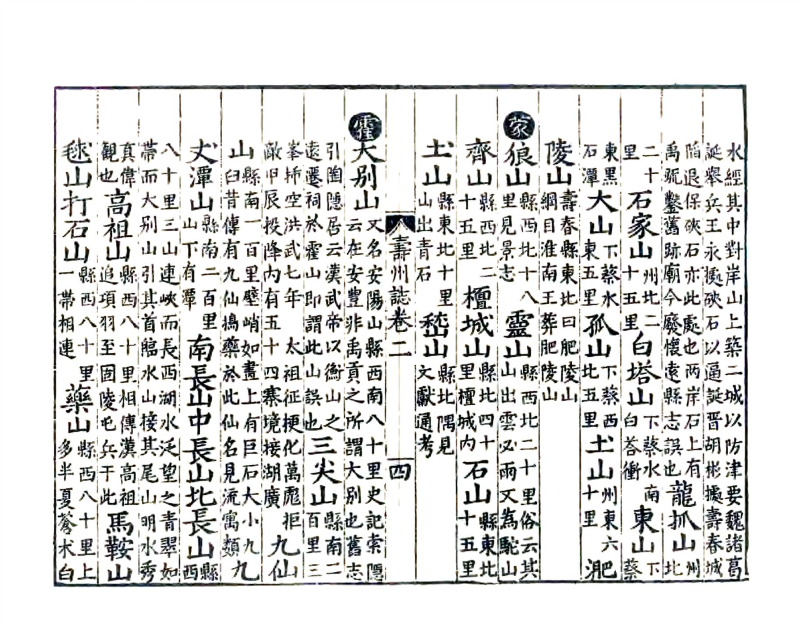 水經其中對岸山上築二城以防津要魏諸葛誕舉兵王永據硤石以逼誕晉胡彬據壽春城
陷退保硤石亦此處也兩岸石上有禹號鑿舊跡廟今廢懷遠縣志誤也龍抓山州北
二十里石家山州北二十五里白塔山下蔡水南白荅衝東山下蔡
東黑石潭大山下蔡水東五里孤山下蔡西北五里土山州東六十里淝
陵山壽春縣東北曰肥陵山綱目淮南王葬肥陵山
蒙狼山縣西北十八里見景志靈山縣西北二十里俗云其山出雲必雨又為駝山
齊山縣西北二十五里檀城山縣北四十里檀城內石山縣東北十五里
土山縣東北十里山出青石嵇山縣北隅見文獻通考
壽州誌卷二 四
霍大别山又名安陽山縣西南八十里史記索隱云在安豐非禹貢之所謂大别也舊志
引陶隱居云漢武帝以衡山之遠遷祠於霍山即謂此山誤也三尖山縣南二百里三
峯揷空洪武七年 太祖征梗化萬彪拒敵甲辰投降內有五十四寨境接湖廣九仙
山縣南一百里壁峭如畫上有巨石大小九臼昔傳有九仙搗藥於此仙名見流寓類九
丈潭山縣南二百里山下有潭南長山中長山北長山縣西
八十里三山連峽而長西湖水泛望之青翠如帶而大别山引其首臨水山接其尾山明水秀
真偉觀也高祖山縣西八十里相傳漢高祖追項羽至固陵屯兵于此馬鞍山
毬山打石山縣西八十里一帶相連藥山縣西八十里上多半夏蒼朮白